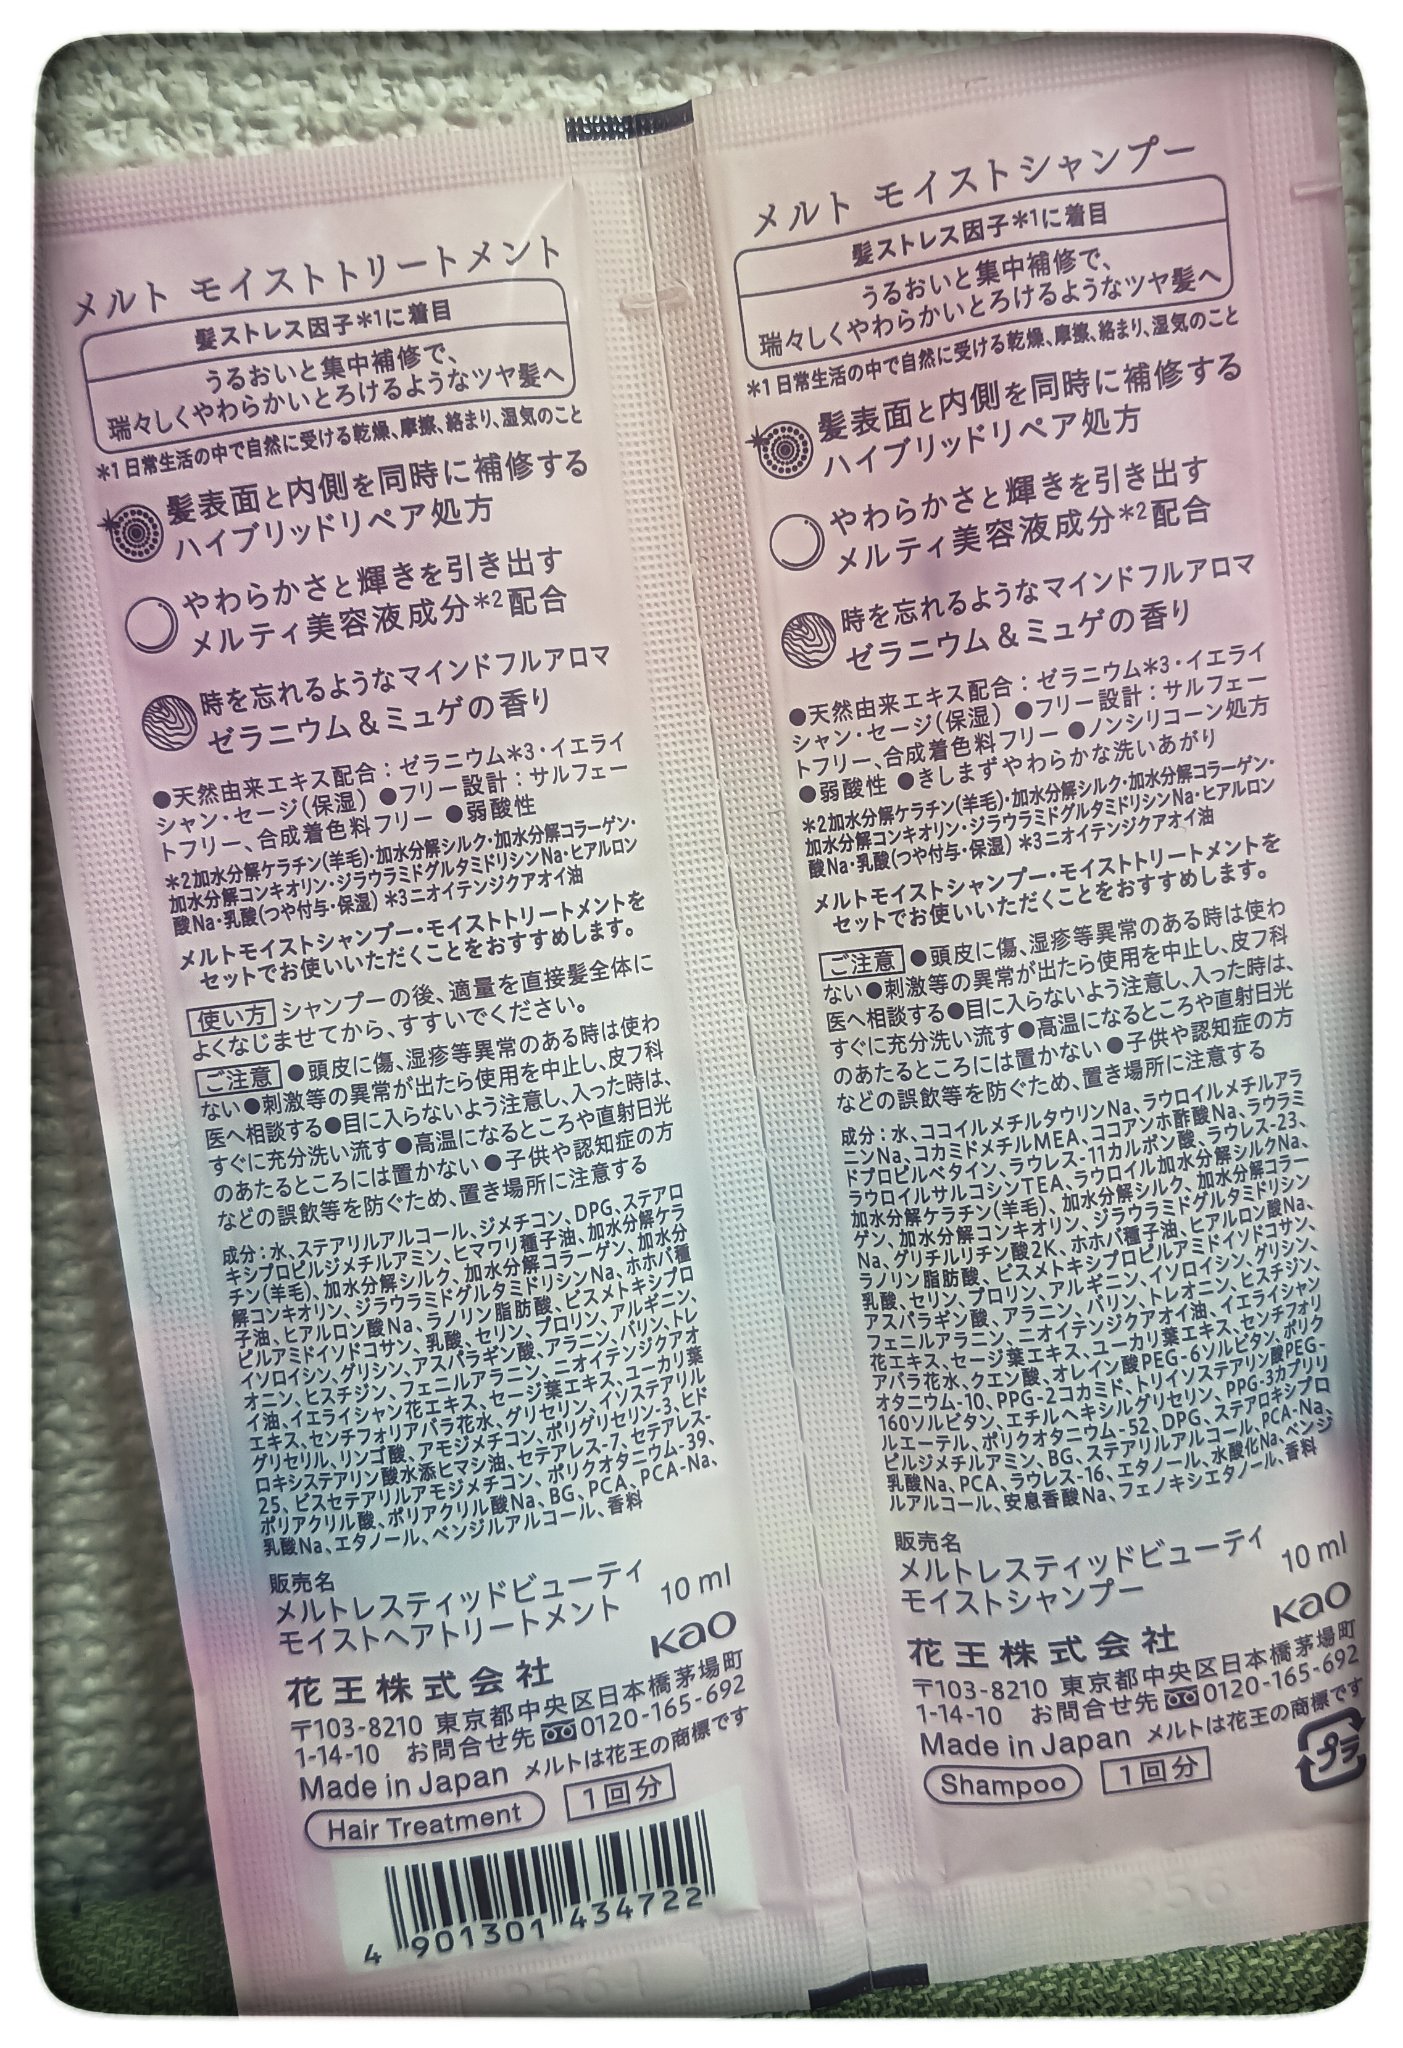 メルト モイストトリートメント
髪ストレス因子*1に着目
うるおいと集中補修で、
瑞々しくやわらかいとろけるようなツヤ髪へ
*1 日常生活の中で自然に受ける乾燥、摩擦、絡まり、湿気のこと
髪表面と内側を同時に補修する
ハイブリッドリペア処方
やわらかさと輝きを引き出す
メルティ美容液成分*2配合
時を忘れるようなマインドフルアロマ
ゼラニウム&ミュゲの香り
●天然由来エキス配合:ゼラニウム*3・イエライ
シャン・セージ(保湿) ●フリー設計:サルフェー
トフリー、合成着色料フリー ●弱酸性
*2加水分解ケラチン(羊毛)・加水分解シルク・加水分解コラーゲン・
加水分解コンキオリン・ジラウラミドグルタミドリシンNa・ヒアルロン
酸Na・乳酸(つや付与・保湿) *3ニオイテンジクアオイ油
メルトモイストシャンプー・モイストトリートメントを
セットでお使いいただくことをおすすめします。
使い方 シャンプーの後、適量を直接髪全体に
よくなじませてから、すすいでください。
ご注意 ●頭皮に傷、湿疹等異常のある時は使わ
ない●刺激等の異常が出たら使用を中止し、皮フ科
医へ相談する●目に入らないよう注意し、入った時は、
すぐに充分洗い流す●高温になるところや直射日光
のあたるところには置かない●子供や認知症の方
などの誤飲等を防ぐため、置き場所に注意する
成分:水、ステアリルアルコール、ジメチコン、DPG、ステアロ
キシプロピルジメチルアミン、ヒマワリ種子油、加水分解ケラ
チン(羊毛)、加水分解シルク、加水分解コラーゲン、加水分
解コンキオリン、ジラウラミドグルタミドリシンNa、ホホバ種
子油、ヒアルロン酸Na、ラノリン脂肪酸、ビスメトキシプロ
ピルアミドイソドコサン、乳酸、セリン、プロリン、アルギニン、
イソロイシン、グリシン、アスパラギン酸、アラニン、バリン、トレ
オニン、ヒスチジン、フェニルアラニン、ニオイテンジクアオ
イ油、イエライシャン花エキス、セージ葉エキス、ユーカリ葉
エキス、センチフォリアバラ花水、グリセリン、イソステアリル
グリセリル、リンゴ酸、アモジメチコン、ポリグリセリン-3、ヒド
ロキシステアリン酸水添ヒマシ油、セテアレス-7、セテアレス-
25、ビスセテアリルアモジメチコン、ポリクオタニウム-39、
ポリアクリル酸、ポリアクリル酸Na、BG、PCA、PCA-Na、
乳酸Na、エタノール、ベンジルアルコール、香料
販売名
メルトレスティッドビューティ
モイストヘアトリートメント
10 ml
Kao
花王株式会社
〒103-8210 東京都中央区日本橋茅場町
1-14-10 お問合せ先 0120-165-692
Made in Japan メルトは花王の商標です
Hair Treatment 1回分
4 901301 434722
メルト モイストシャンプー
髪ストレス因子*1に着目
うるおいと集中補修で、
瑞々しくやわらかいとろけるようなツヤ髪へ
*1 日常生活の中で自然に受ける乾燥、摩擦、絡まり、湿気のこと
髪表面と内側を同時に補修する
ハイブリッドリペア処方
やわらかさと輝きを引き出す
メルティ美容液成分*2配合
時を忘れるようなマインドフルアロマ
ゼラニウム&ミュゲの香り
●天然由来エキス配合:ゼラニウム*3・イエライ
シャン・セージ(保湿) ●フリー設計:サルフェー
トフリー、合成着色料フリー ●ノンシリコーン処方
●弱酸性 ●きしまずやわらかな洗いあがり
*2加水分解ケラチン(羊毛)・加水分解シルク・加水分解コラーゲン・
加水分解コンキオリン・ジラウラミドグルタミドリシンNa・ヒアルロン
酸Na・乳酸(つや付与・保湿) *3ニオイテンジクアオイ油
メルトモイストシャンプー・モイストトリートメントを
セットでお使いいただくことをおすすめします。
ご注意 ●頭皮に傷、湿疹等異常のある時は使わ
ない●刺激等の異常が出たら使用を中止し、皮フ科
医へ相談する●目に入らないよう注意し、入った時は、
すぐに充分洗い流す●高温になるところや直射日光
のあたるところには置かない●子供や認知症の方
などの誤飲等を防ぐため、置き場所に注意する
成分:水、ココイルメチルタウリンNa、ラウロイルメチルアラ
ニンNa、コカミドメチルMEA、ココアンホ酢酸Na、ラウラミ
ドプロピルベタイン、ラウレス-11カルボン酸、ラウレス-23、
ラウロイルサルコシンTEA、ラウロイル加水分解シルクNa、
加水分解ケラチン(羊毛)、加水分解シルク、加水分解コラー
ゲン、加水分解コンキオリン、ジラウラミドグルタミドリシン
Na、グリチルリチン酸2K、ホホバ種子油、ヒアルロン酸Na、
ラノリン脂肪酸、ビスメトキシプロピルアミドイソドコサン、
乳酸、セリン、プロリン、アルギニン、イソロイシン、グリシン、
アスパラギン酸、アラニン、バリン、トレオニン、ヒスチジン、
フェニルアラニン、ニオイテンジクアオイ油、イエライシャン
花エキス、セージ葉エキス、ユーカリ葉エキス、センチフォリ
アバラ花水、クエン酸、オレイン酸PEG-6ソルビタン、ポリク
オタニウム-10、PPG-2コカミド、トリイソステアリン酸PEG-
160ソルビタン、エチルヘキシルグリセリン、PPG-3カプリリ
ルエーテル、ポリクオタニウム-52、DPG、ステアロキシプロ
ピルジメチルアミン、BG、ステアリルアルコール、PCA-Na、
乳酸Na、PCA、ラウレス-16、エタノール、水酸化Na、ベンジ
ルアルコール、安息香酸Na、フェノキシエタノール、香料
販売名
メルトレスティッドビューティ
モイストシャンプー
10 ml
Kao
花王株式会社
〒103-8210 東京都中央区日本橋茅場町
1-14-10 お問合せ先 0120-165-692
Made in Japan メルトは花王の商標です
Shampoo 1回分
プラ